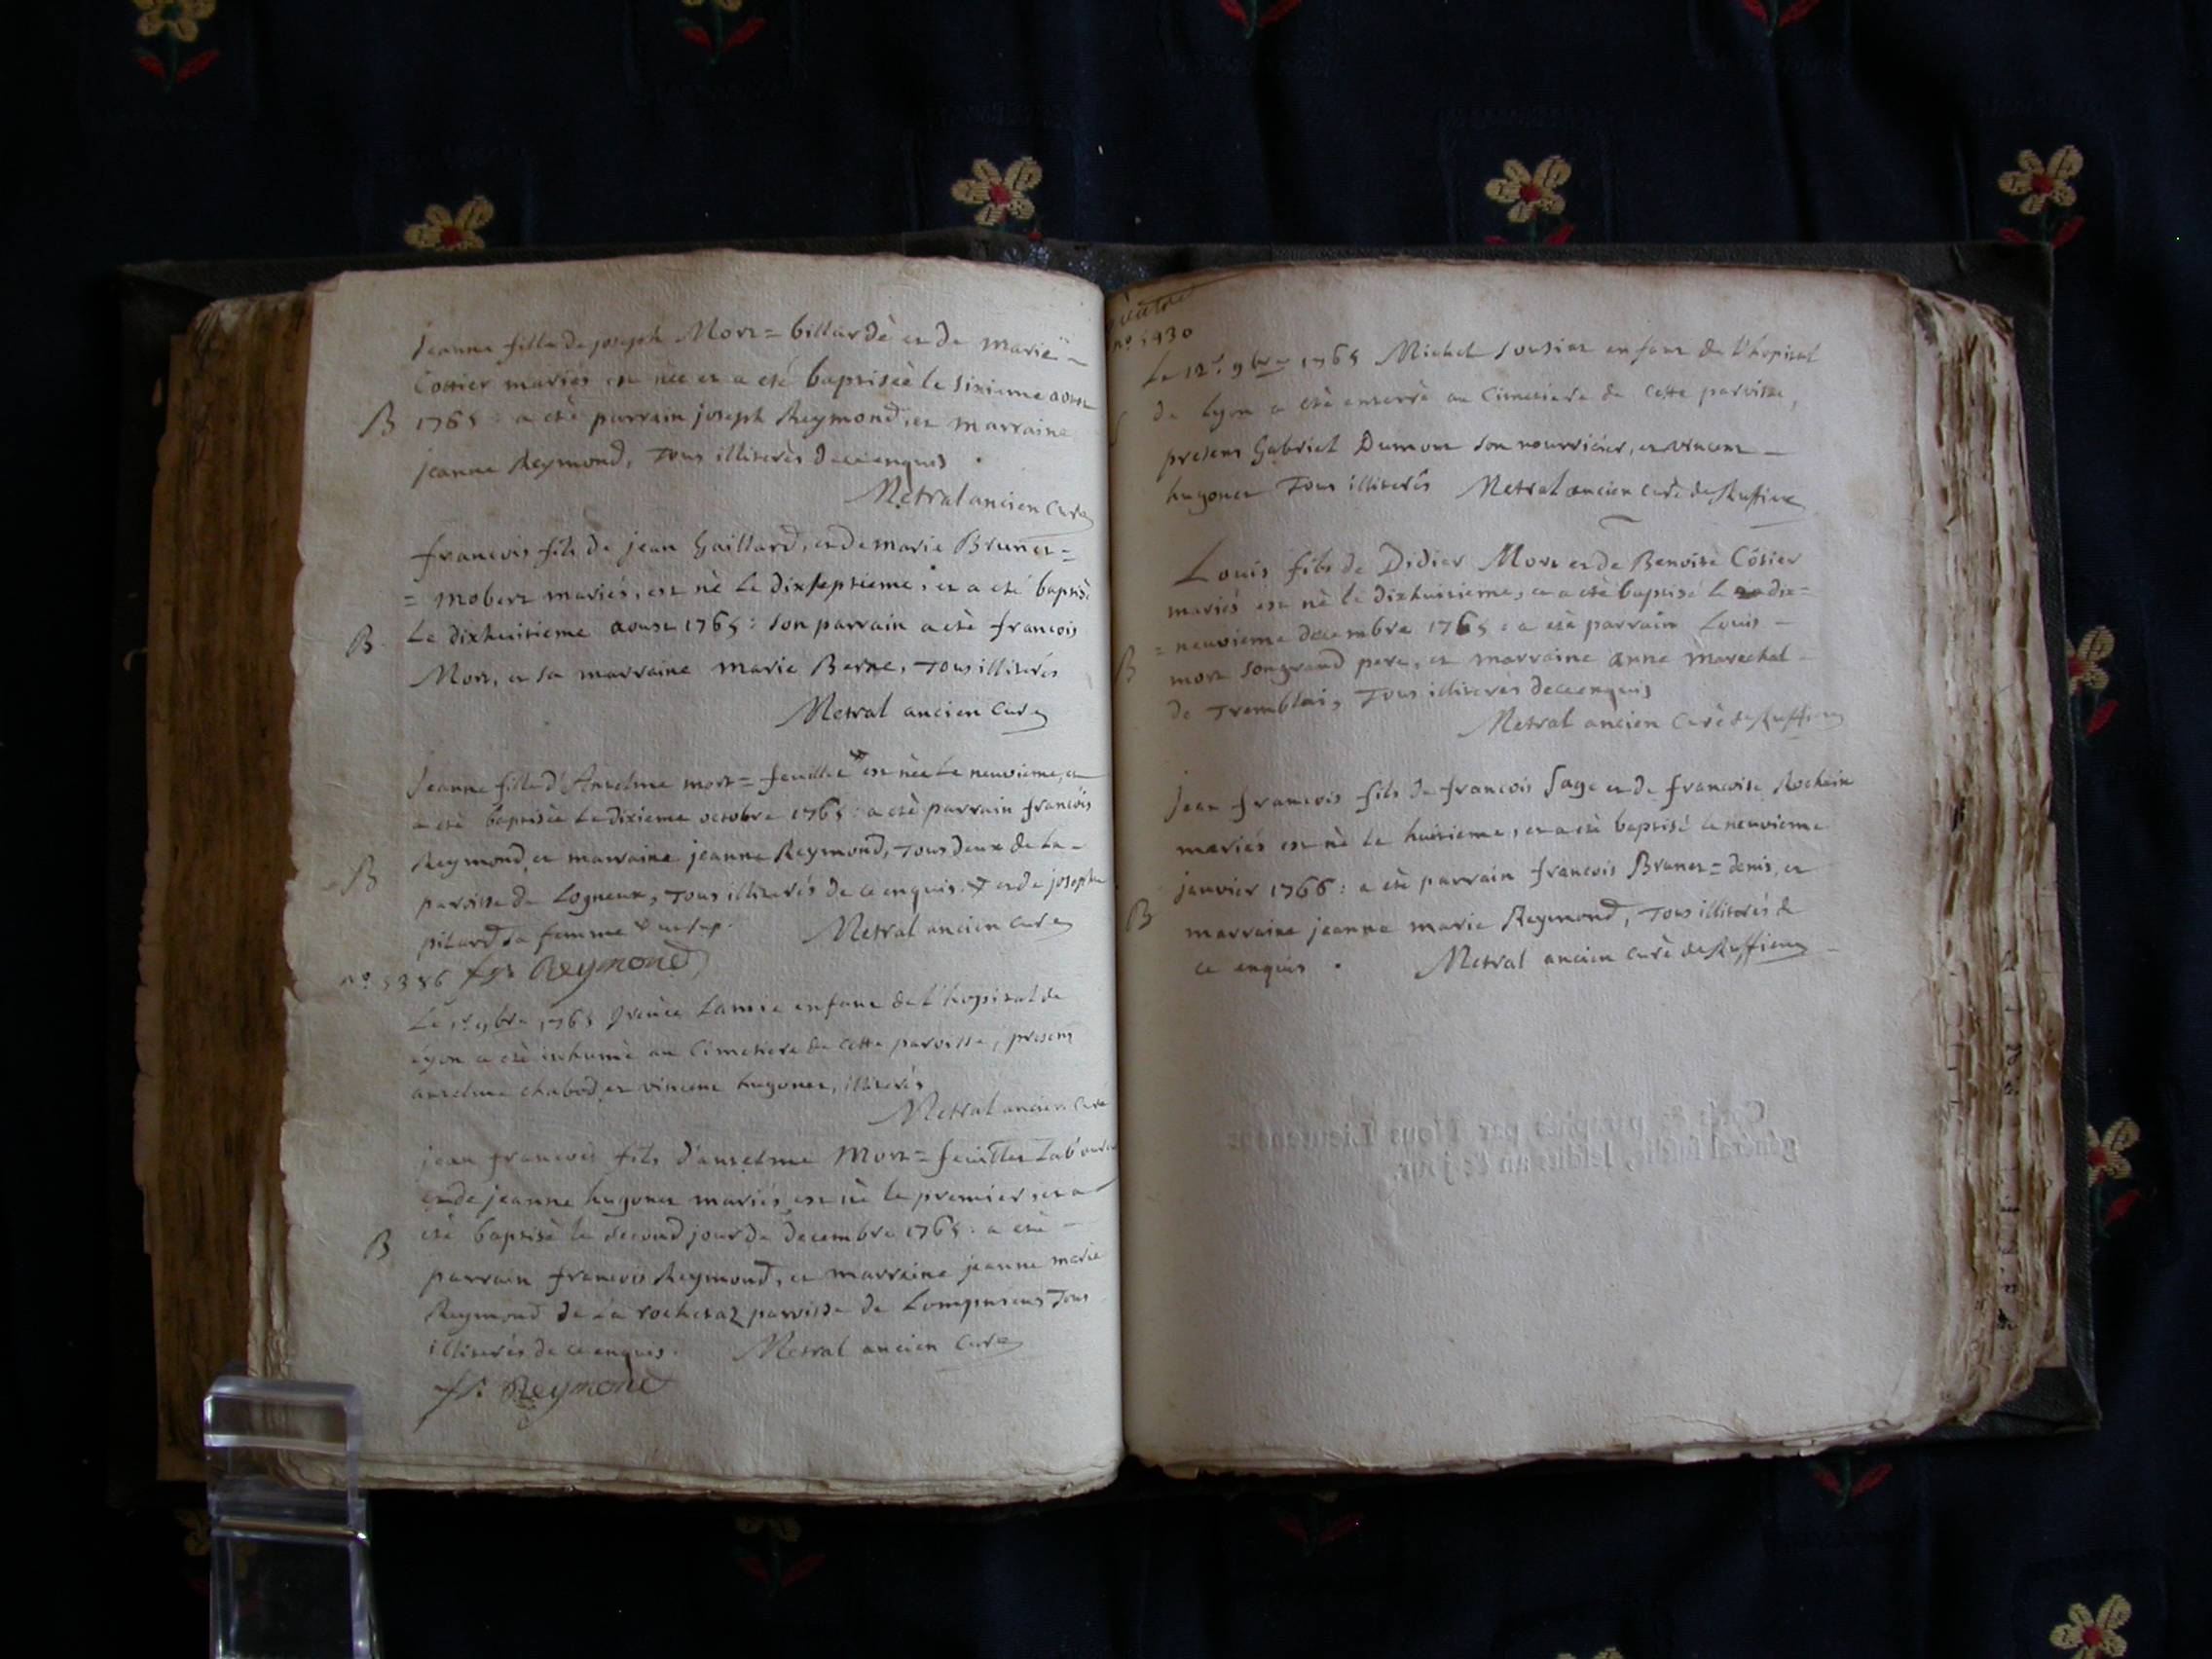 Jeanne fille de joseph Mort = billardè et de marie
Cottier mariés est nèe et a eté baptiseè le sixieme aoust
B 1765 : a eté parrain joseph Reymond, et marraine
jeanne Reymond, Tous illiterès de ce enquis .
Metral ancien Curé
francois fils de jean Gaillard, et de marie Brunet =
= mobert mariés, est nè le dixseptieme, et a eté baptisè
B. Le dixhuitieme aoust 1765 : son parrain a etè francois
Mort, et sa marraine marie Berne, Tous illiterés
Metral ancien Curé
Jeanne fille d'Anselme mort = feuillet est nèe le neuvieme, et
a etè baptisèe le dixieme octobre 1765 : a etè parrain francois
B Reymond et marraine jeanne Reymond, Tous deux de la
paroisse de Logneux, Tous illiterés de ce enquis. et de josephe
pitard sa femme
Metral ancien Curé
n° 5386 fs Reymond
Le 1r 9bre 1765 Lamie enfant de l'hopital de
Lyon a etè inhumè au Cimetiere de cette paroisse, presens
anselme chabod et vincent hugonet, illiterés
Metral ancien Curé
jean francois fils d'anselme Mort = feuillet Laboureur
et de jeanne hugonet mariés est nè le premier, et a
B eté baptisè le second jour de decembre 1765 : a eté
parrain francois Reymond, et marraine jeanne marie
Reymond de La rochetaz paroisse de Tous
illiterés de ce enquis. Metral ancien Curé
fs: Reymond
n° 5430
Le 12e 9bre 1765 Michel enfant de l'hopital
de Lyon a etè enterrè au Cimetiere de cette paroisse,
presens Gabriel Dumont son nourricier, et vincent
hugonet Tous illiterés Metral ancien curè de Ruffieu
Louis fils de Didier Mort et de Benoite Côtier
mariés est nè le dixhuitieme, et a etè baptisé le dix =
= neuvieme decembre 1765 : a etè parrain Louis
B mort son grand pere, et marraine anne marechal
de Tremblai, Tous illiterès de ce enquis
Metral ancien Curè de Ruffieu
Jean francois fils de francois Sage et de francoise Rochaix
mariés est nè le huitieme, et a etè baptisé le neuvieme
janvier 1766 : a etè parrain francois Brunet = denis, et
B marraine jeanne marie Reymond, Tous illiterés de
ce enquis . Metral ancien curè de Ruffieu